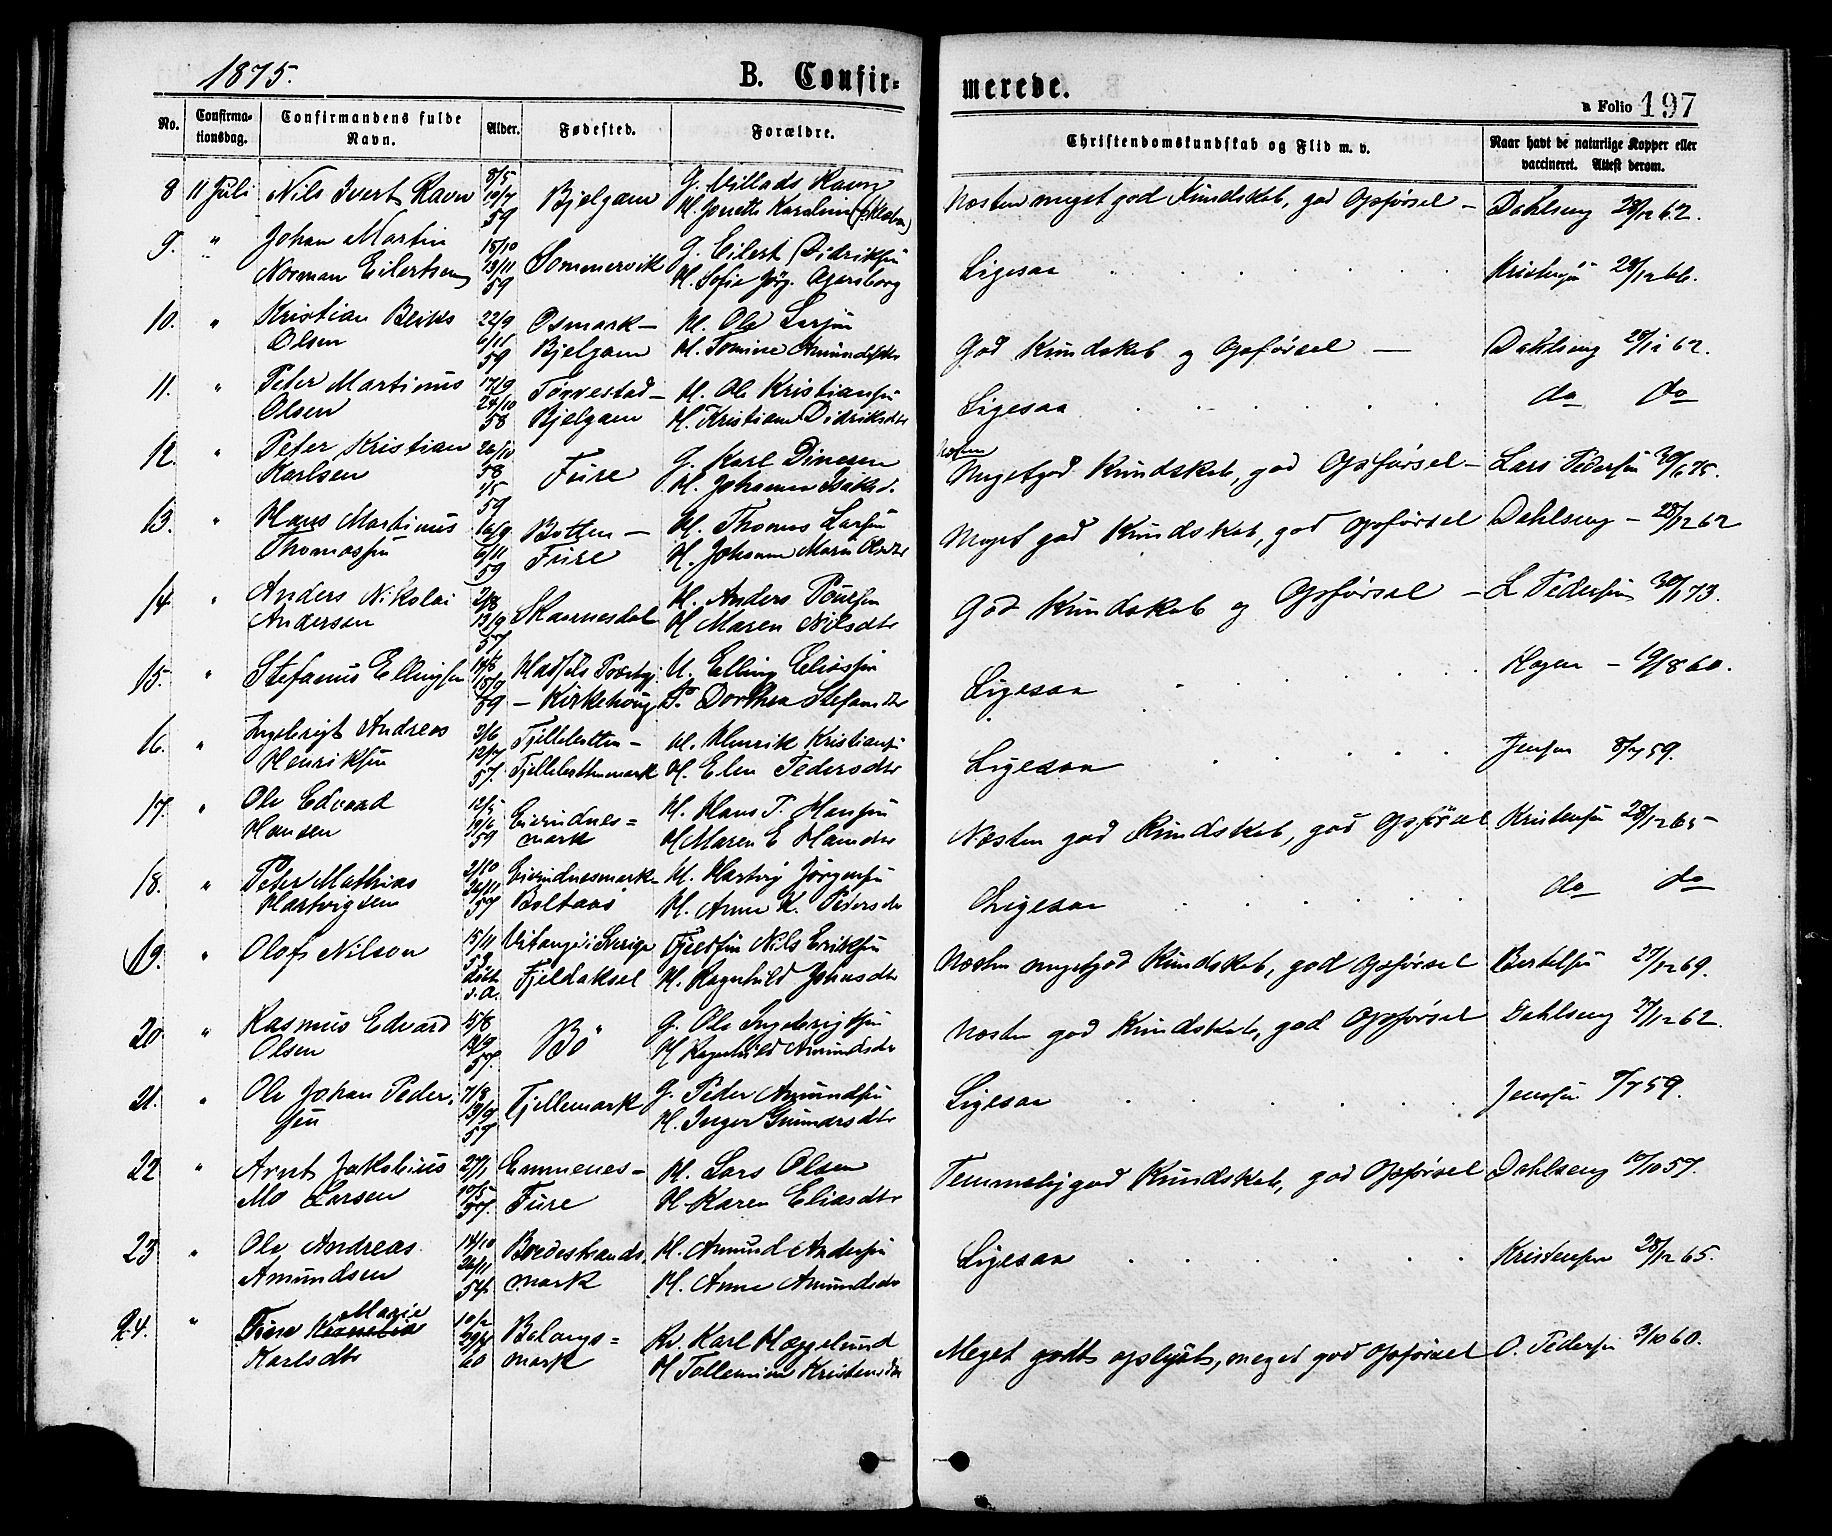 1875.
B. Confir=
merede.
Folio 197
No.
Confirma-
tionsdag.
Confirmandens fulde
Navn.
Alder.
Fødested.
Forældre.
Christendomskundskab og Flid m. v.
Naar havt de naturlige Kopper eller
vaccineret. Attest derom.
8 11 Juli Nils Ivert Ravn 59 Bjelgam G. Villads Ravn
Næsten meget god Kundskab, god Opførsel - Dahlseng 28/12 62.
9. " Johan Martin
Norman Eilertsen 18/10 13/11 59 Sommervik G. Eilert Didriksen
M. Sofie Jørg.
Ligesaa Kristensen 28/12 66.
10. " Kristian
Olsen 22/9 6/11 59 Osmark-
Bjelgam M. Ole Larsen
M. Tomine Amundsdtr
God Kundskab og Opførsel - Dahlseng 28/12 62.
11. " Peter Martinus
Olsen 17/9 24/10 58 Tøvvestad-
Bjelgam M. Ole Kristiansen
M. Kristiane Didriksdtr
Ligesaa do do
12. " Peter Kristian
Karlsen 58 59 Fure G. Karl Dinesen
M. Johanna Isaksd.
Næsten
Meget god Kundskab, god Opførsel - Lars Pedersen 75.
13. " Hans Martinus
Thomassen 16/9 6/11 59 Botten-
Fure M. Thomas Larsen
M. Johanna Maria Olsdtr
Meget god Kundskab, god Opførsel Dahlseng - 28/12 62
14 " Anders Nikolai
Andersen 2/8 13/9 57 Skaanesdal M. Anders Poulsen
M Maren Nilsdtr
God Kundskab og Opførsel - L Pedersen 73.
15. " Stefanus Ellingsen 59 Hadsels Præstgj
- Kirkehoug M. Elling Eliassen
Dorthea Stefansdtr
Ligesaa Hagen - 19/8 60.
16. " Ingebrigt Andreas
Henriksen 3/6 12/7 57. Fjellebotten -
Fjellebottenmark M. Henrik Kristiansen
M. Elen Pedersdtr
Ligesaa Jensen 8/7 59.
17. " Ole Edvard
Hansen 12/5 19/6 59 Eierindnes=
mark M. Hans P. Hansen
M Maren E Hansdtr
Næsten god Kundskab, god Opførsel Kristensen 28/12 65
18. " Peter Mathias
Hartvigsen 2/10 26/11 57 Eierindnesmark
Boltaas M. Hartvig Jørgensen
M. Anne K. Pedersdtr
Ligesaa do do
19. " Olof Nilson 15/11 59 døbt s. A. Vitange i Sverige
Fjeldaksel Nils Eriksen
M. Ragnhild Johnsdtr
Næsten meget god Kundskab, god Opførsel Bertelsen 27/12 69.
20 " Rasmus Edvard
Olsen 15/8 57. Bö G. Ole Ingebrigtsen
M Ragnhild Amundsdtr
Næsten god Kundskab, god Opførsel Dahlseng 62.
21. " Ole Johan Peder-
sen 7/8 13/9 57 Fjellemark G. Peder Amundsen
M. Inger Gunnarsdtr
Ligesaa Jensen 8/7 59.
22 " Arnt Jakobius
Mo Larsen 57. Emmenes-
Fure M. Lars Olsen
M Karen Eliasdtr
Temmelig god Kundskab, god Opførsel Dahlseng 57.
23 " Ole Andreas
Amundsen 14/10 26/11 Bredestrands
mark M. Amund Andersen
M. Anne Amundsdtr
Ligesaa Kristensen 28/12 65.
24. " Marie
Karlsdtr 10/2 60 Balangs=
mark Kv. Karl Hæggelund
M Kristensdtr
Meget godt oplyst, meget god Opførsel O. Pedersen 3/10 60.